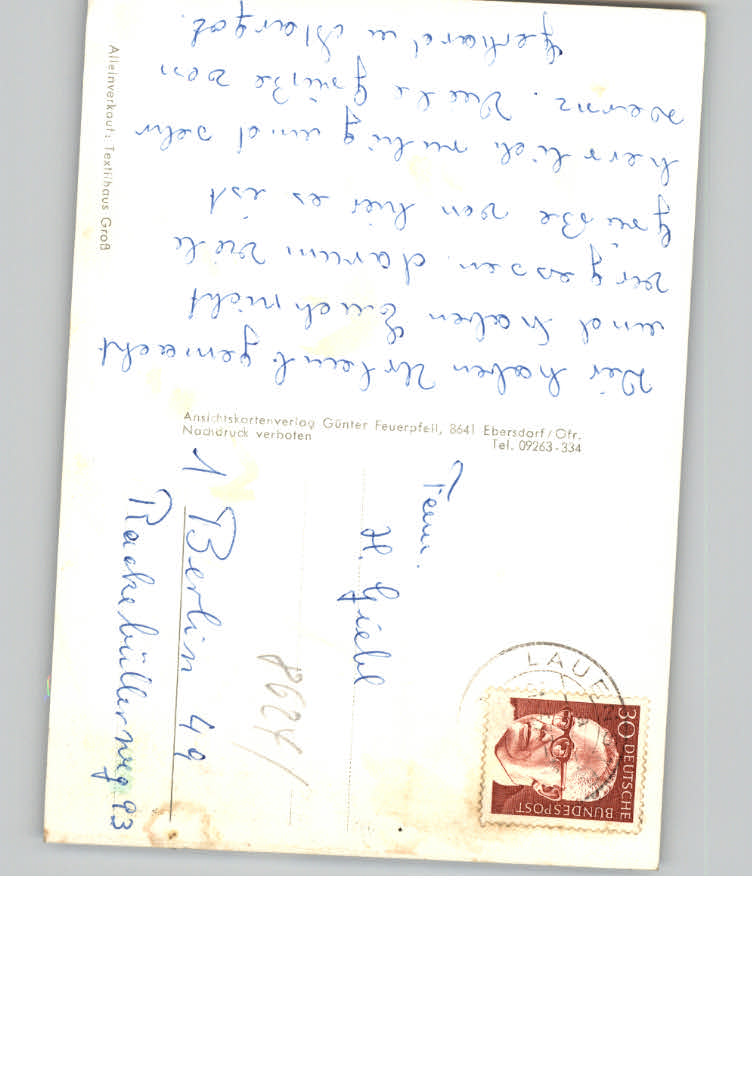 Wir haben Urlaub gemacht
und haben Euch nicht
vergessen. darum viele
Grüße von hier es ist
herrlich ruhig und sehr
warm. Viele Grüße von
Gerhard u Margot.
Alleinverkauf: Textilhaus Groß
Ansichtskartenverlag Günter Feuerpfeil, 8641 Ebersdorf/Ofr.
Nachdruck verboten Tel. 09263-334
Fam.
H. Giebl
1 Berlin 49
Rackebüllerweg 93
LAUE
30 DEUTSCHE
BUNDESPOST